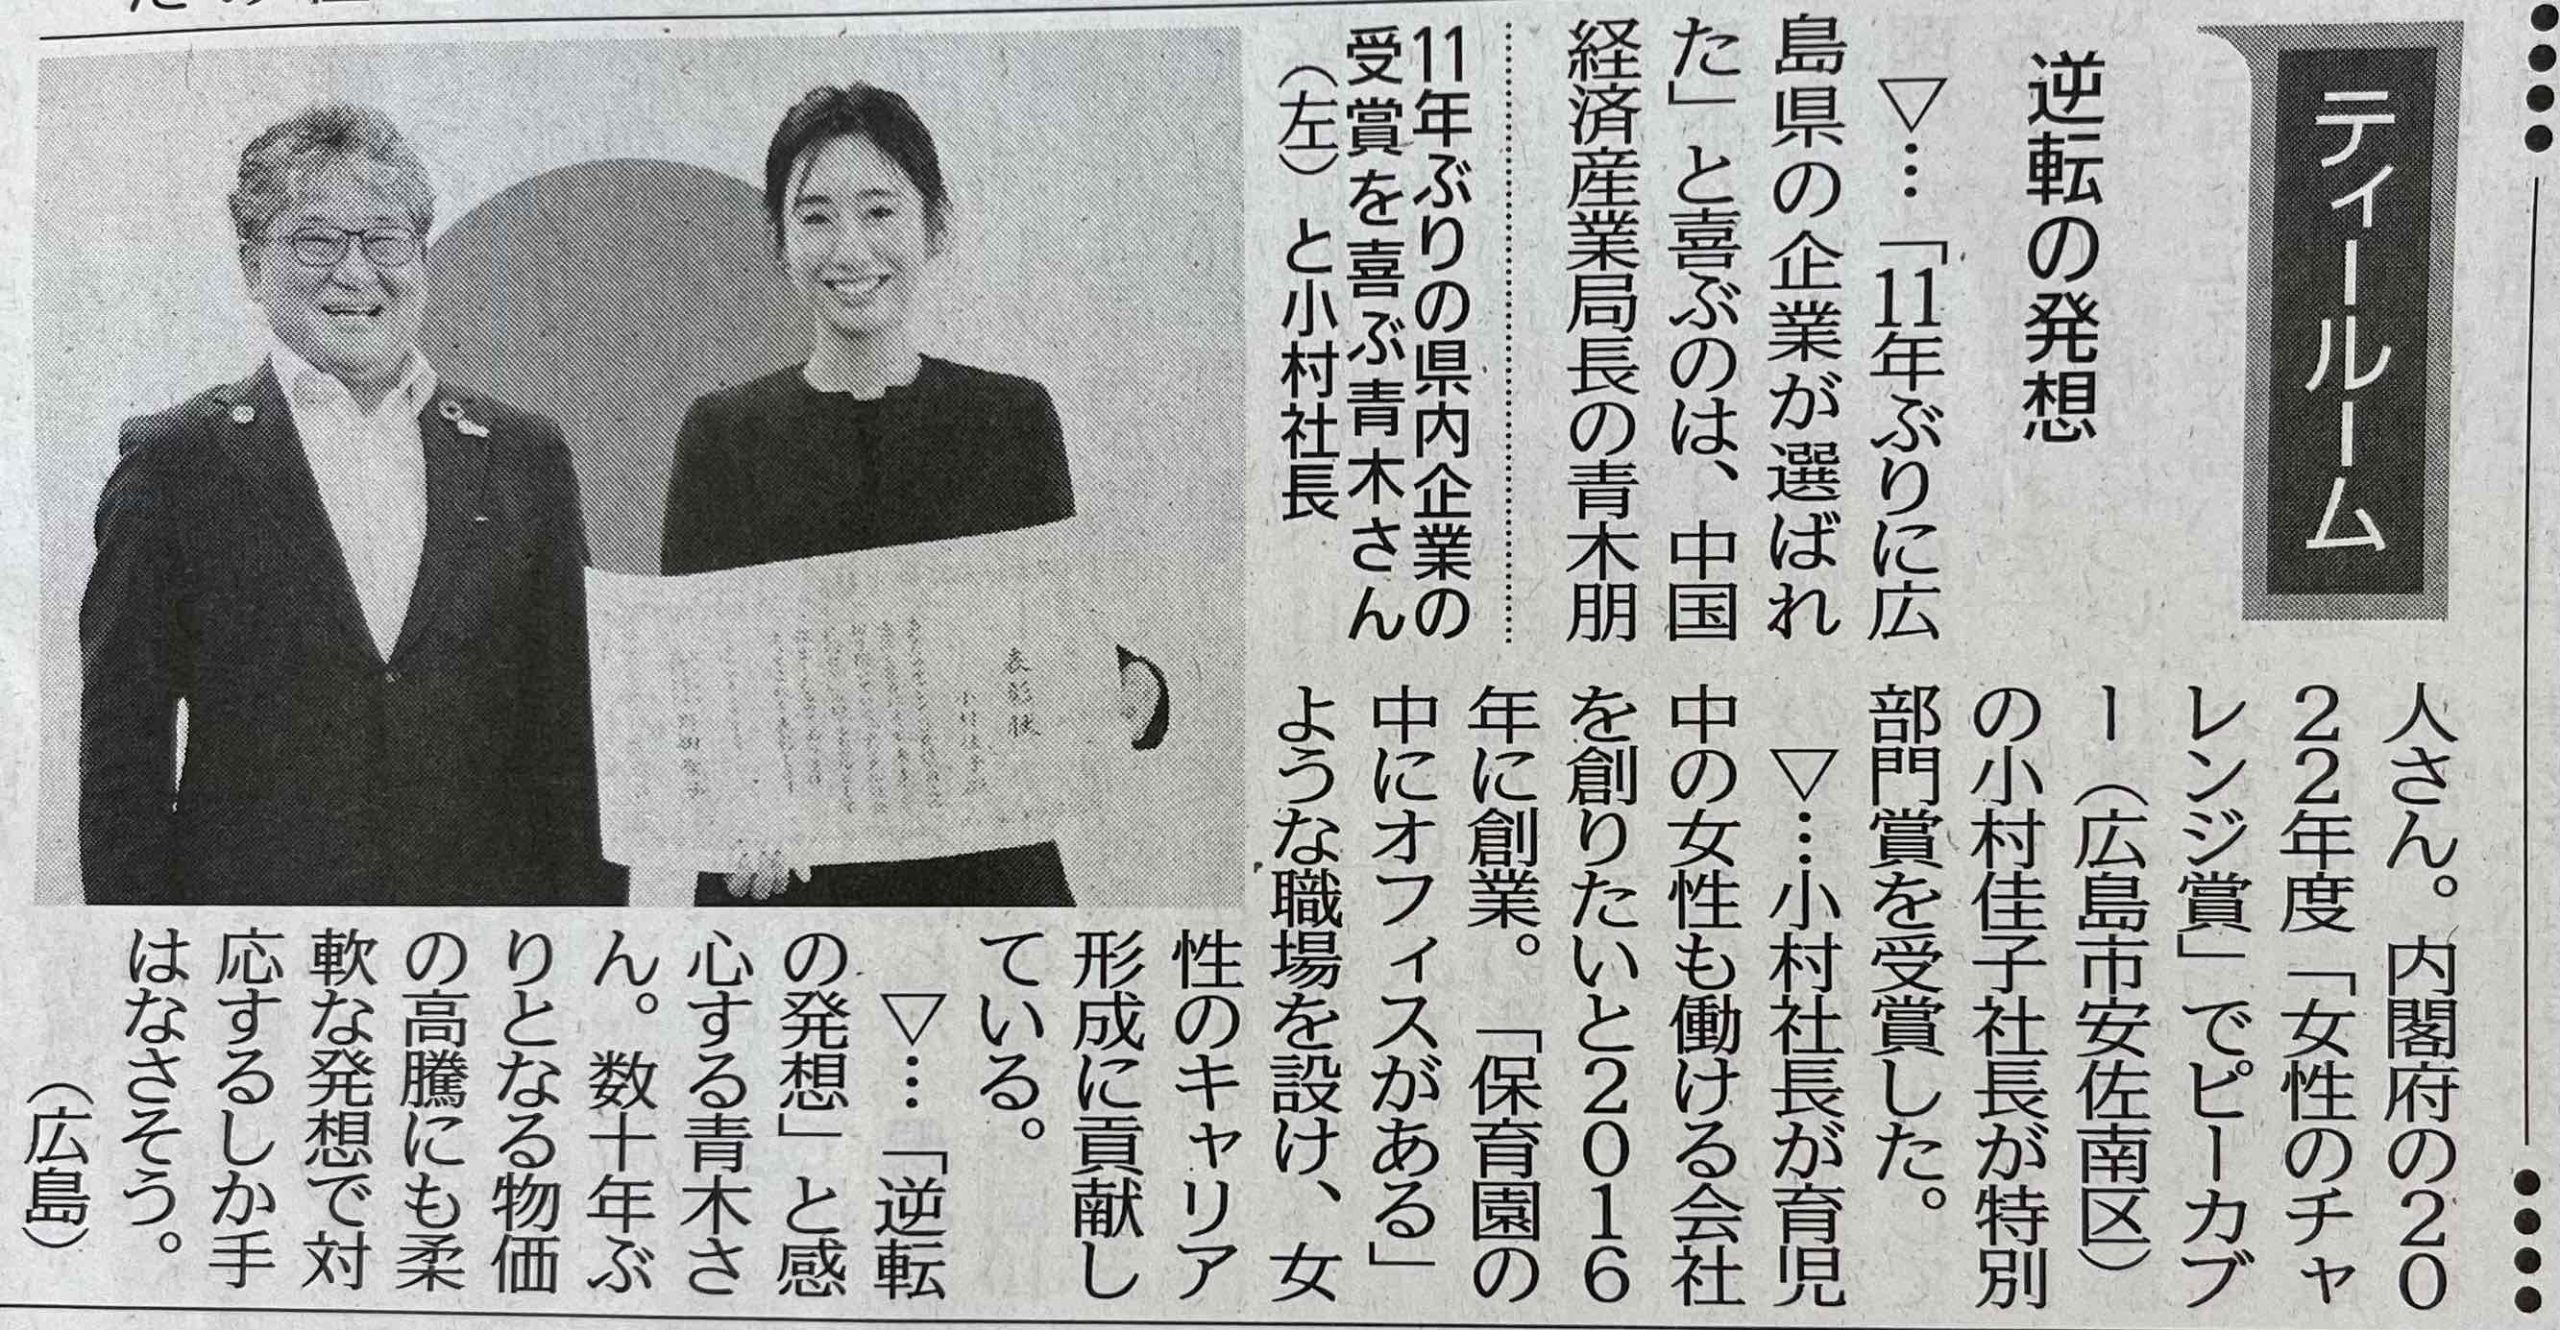 ティールーム
逆転の発想
▽…「11年ぶりに広
島県の企業が選ばれ
た」と喜ぶのは、中国
経済産業局長の青木朋
人さん。内閣府の20
22年度「女性のチャ
レンジ賞」でピーカブ
ー（広島市安佐南区）
の小村佳子社長が特別
部門賞を受賞した。
▽…小村社長が育児
中の女性も働ける会社
を創りたいと2016
年に創業。「保育園の
中にオフィスがある」
ような職場を設け、女
性のキャリア
形成に貢献し
ている。
▽…「逆転
の発想」と感
心する青木さ
ん。数十年ぶ
りとなる物価
の高騰にも柔
軟な発想で対
応するしか手
はなさそう。
（広島）
11年ぶりの県内企業の
受賞を喜ぶ青木さん
（左）と小村社長
表彰状